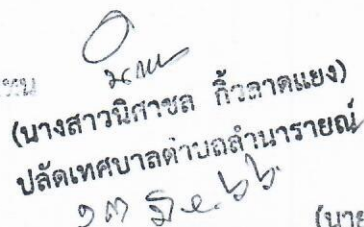 (นางสาวนิศาชล กิ้วลาดแยง)
ปลัดเทศบาลตำบลลำนารายณ์
๑๓ มิ.ย. ๖๖
(นาย